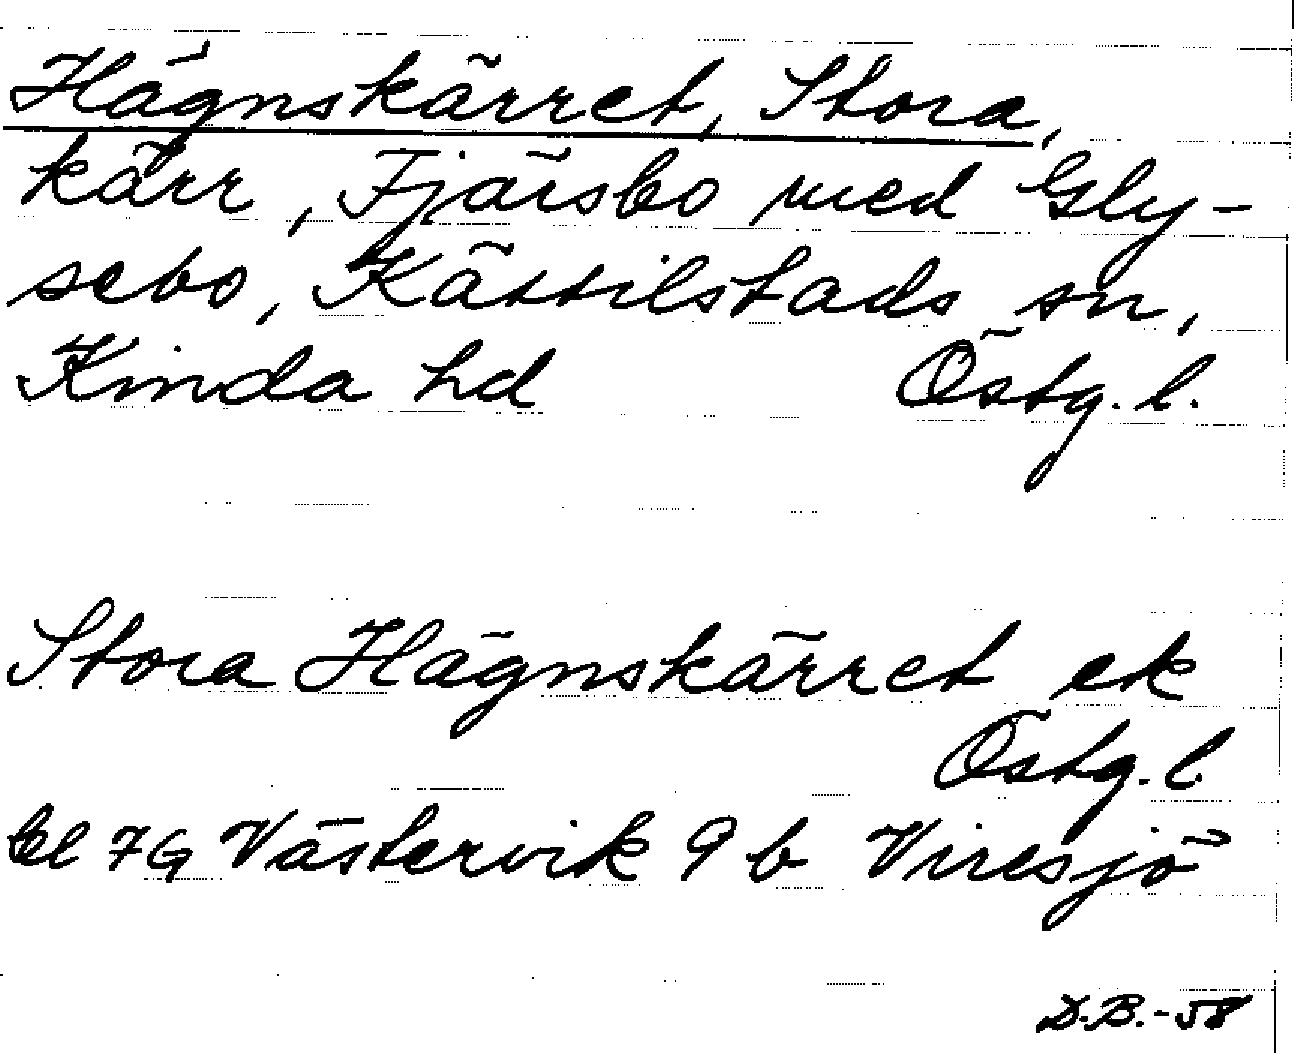 Hägnskärret, Stora,
kärr, Fjärsbo med Gly-
sebo, Kättilstads sn,
Kinda hd Östg. l.
Stora Hägnskärret ek
Östg. l.
bl 7G Västervik 9 b Viresjö
D.B.-58